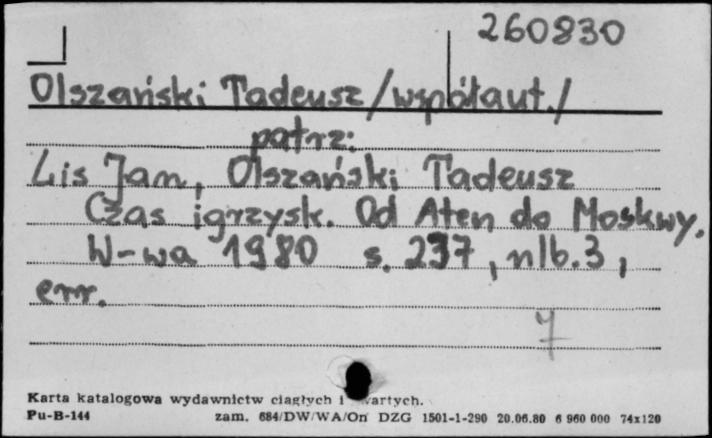 260830
Olszański Tadeusz /współaut./
patrz:
Lis Jan, Olszański Tadeusz
Czas igrzysk. Od Aten do Moskwy.
W-wa 1980 s. 237, nlb. 3,
err.
7
Karta katalogowa wydawnictw ciągłych i wartych.
Pu-B-144 zam. 684/DW/WA/On DZG 1501-1-290 20.06.80 6 960 000 74x120